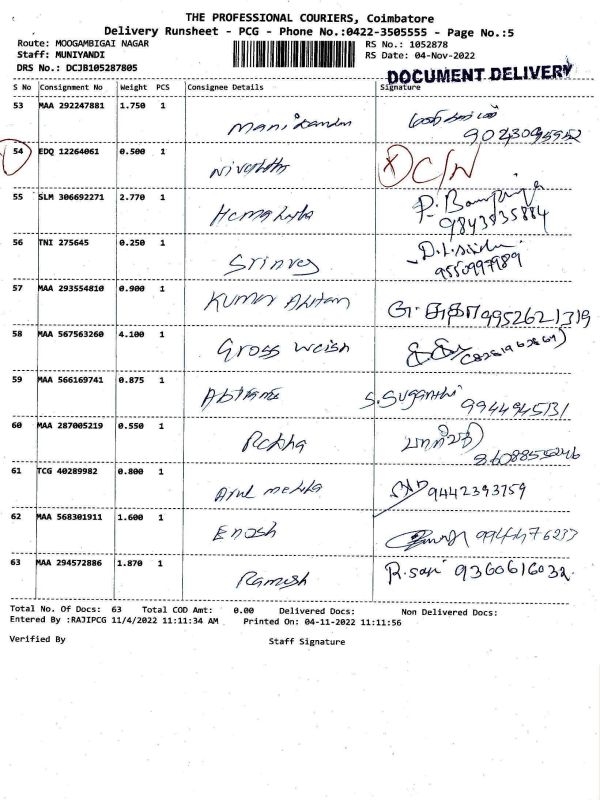 THE PROFESSIONAL COURIERS, Coimbatore
Delivery Runsheet - PCG - Phone No.:0422-3505555 - Page No.:5
Route: MOOGAMBIGAI NAGAR RS No.: 1052878
Staff: MUNIYANDI RS Date: 04-Nov-2022
DRS No.: DCJB105287805
DOCUMENT DELIVERY
S No Consignment No Weight PCS Consignee Details Signature
53 MAA 292247881 1.750 1
54 EDQ 12264061 0.500 1 C/N
55 SLM 306692271 2.770 1 Hemalatha 9843835884
56 TNI 275645 0.250 1 Srinvas 9550997989
57 MAA 293554810 0.900 1 Kumar 9952621319
58 MAA 567563260 4.100 1 Gross Weish
59 MAA 566169741 0.875 1 S. Suganthi 9944945131
60 MAA 287005219 0.550 1 Rekha
61 TCG 40289982 0.800 1 Arul 9442393759
62 MAA 568301911 1.600 1 Enosh
63 MAA 294572886 1.870 1 Ramesh 9360616032
Total No. Of Docs: 63 Total COD Amt: 0.00 Delivered Docs: Non Delivered Docs:
Entered By :RAJIPCG 11/4/2022 11:11:34 AM Printed On: 04-11-2022 11:11:56
Verified By Staff Signature